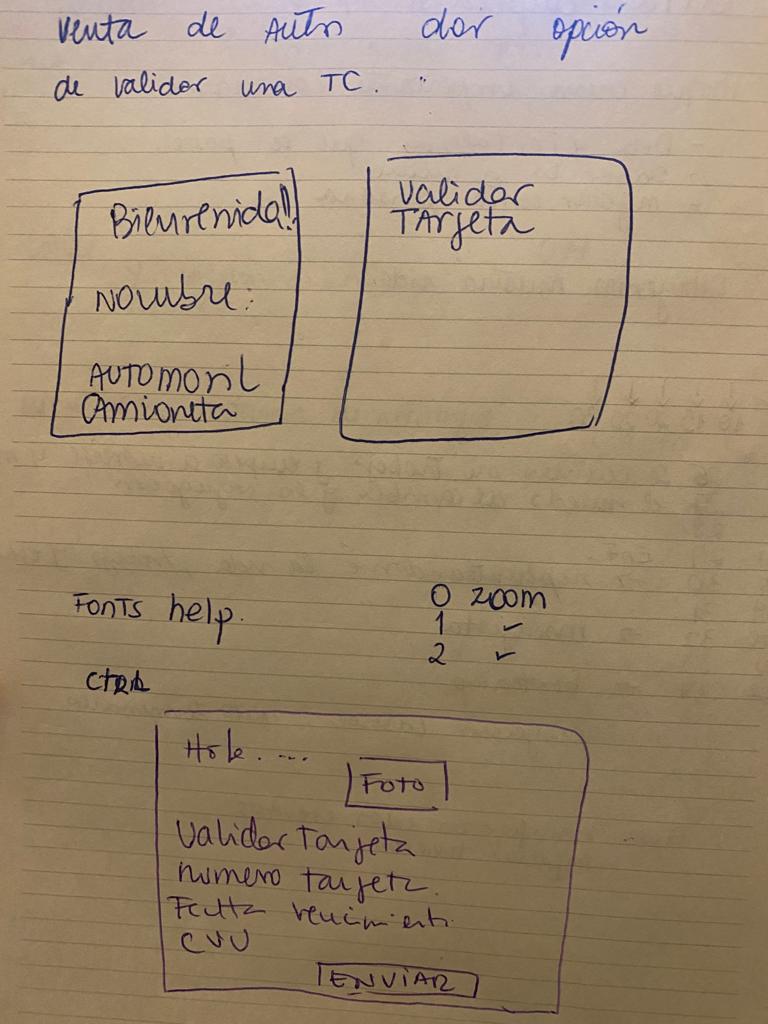 venta de AUTO dar opción
de validar una TC.
Bienvenida!!
NOMbre:
AUTOMOVIL
CAmioneta
Validar
TARjeta
FONTS help.
0 zoom
1 ✓
2 ✓
ctrl
Hola. ...
FOTO
Validar Tarjeta
numero tarjeta.
Fecha vencimiento
CVV
ENVIAR